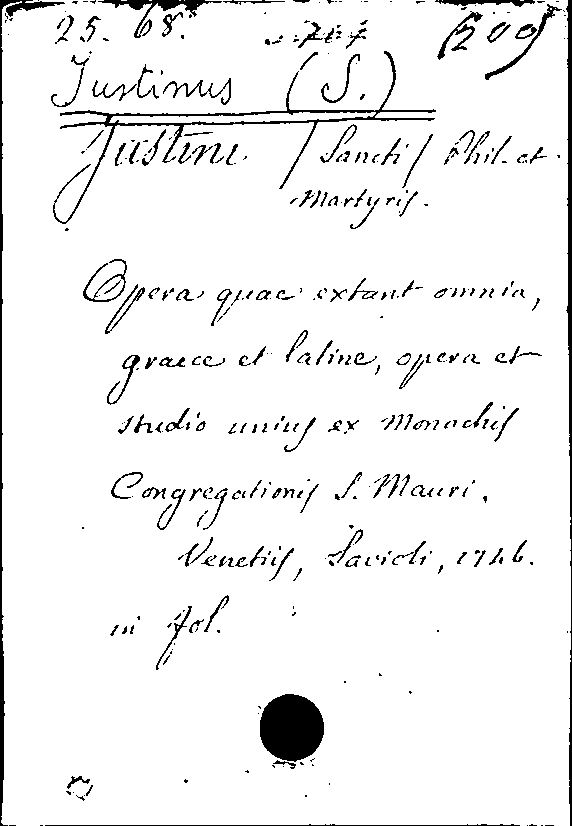 25. 68. (209)
Justinus (S.)
Justini (Sancti) Phil. et
Martyris.
Opera quae extant omnia,
graece et latine, opera et
studio unius ex Monachis
Congregationis S. Mauri.
Venetiis, Savioli, 1746.
in fol.